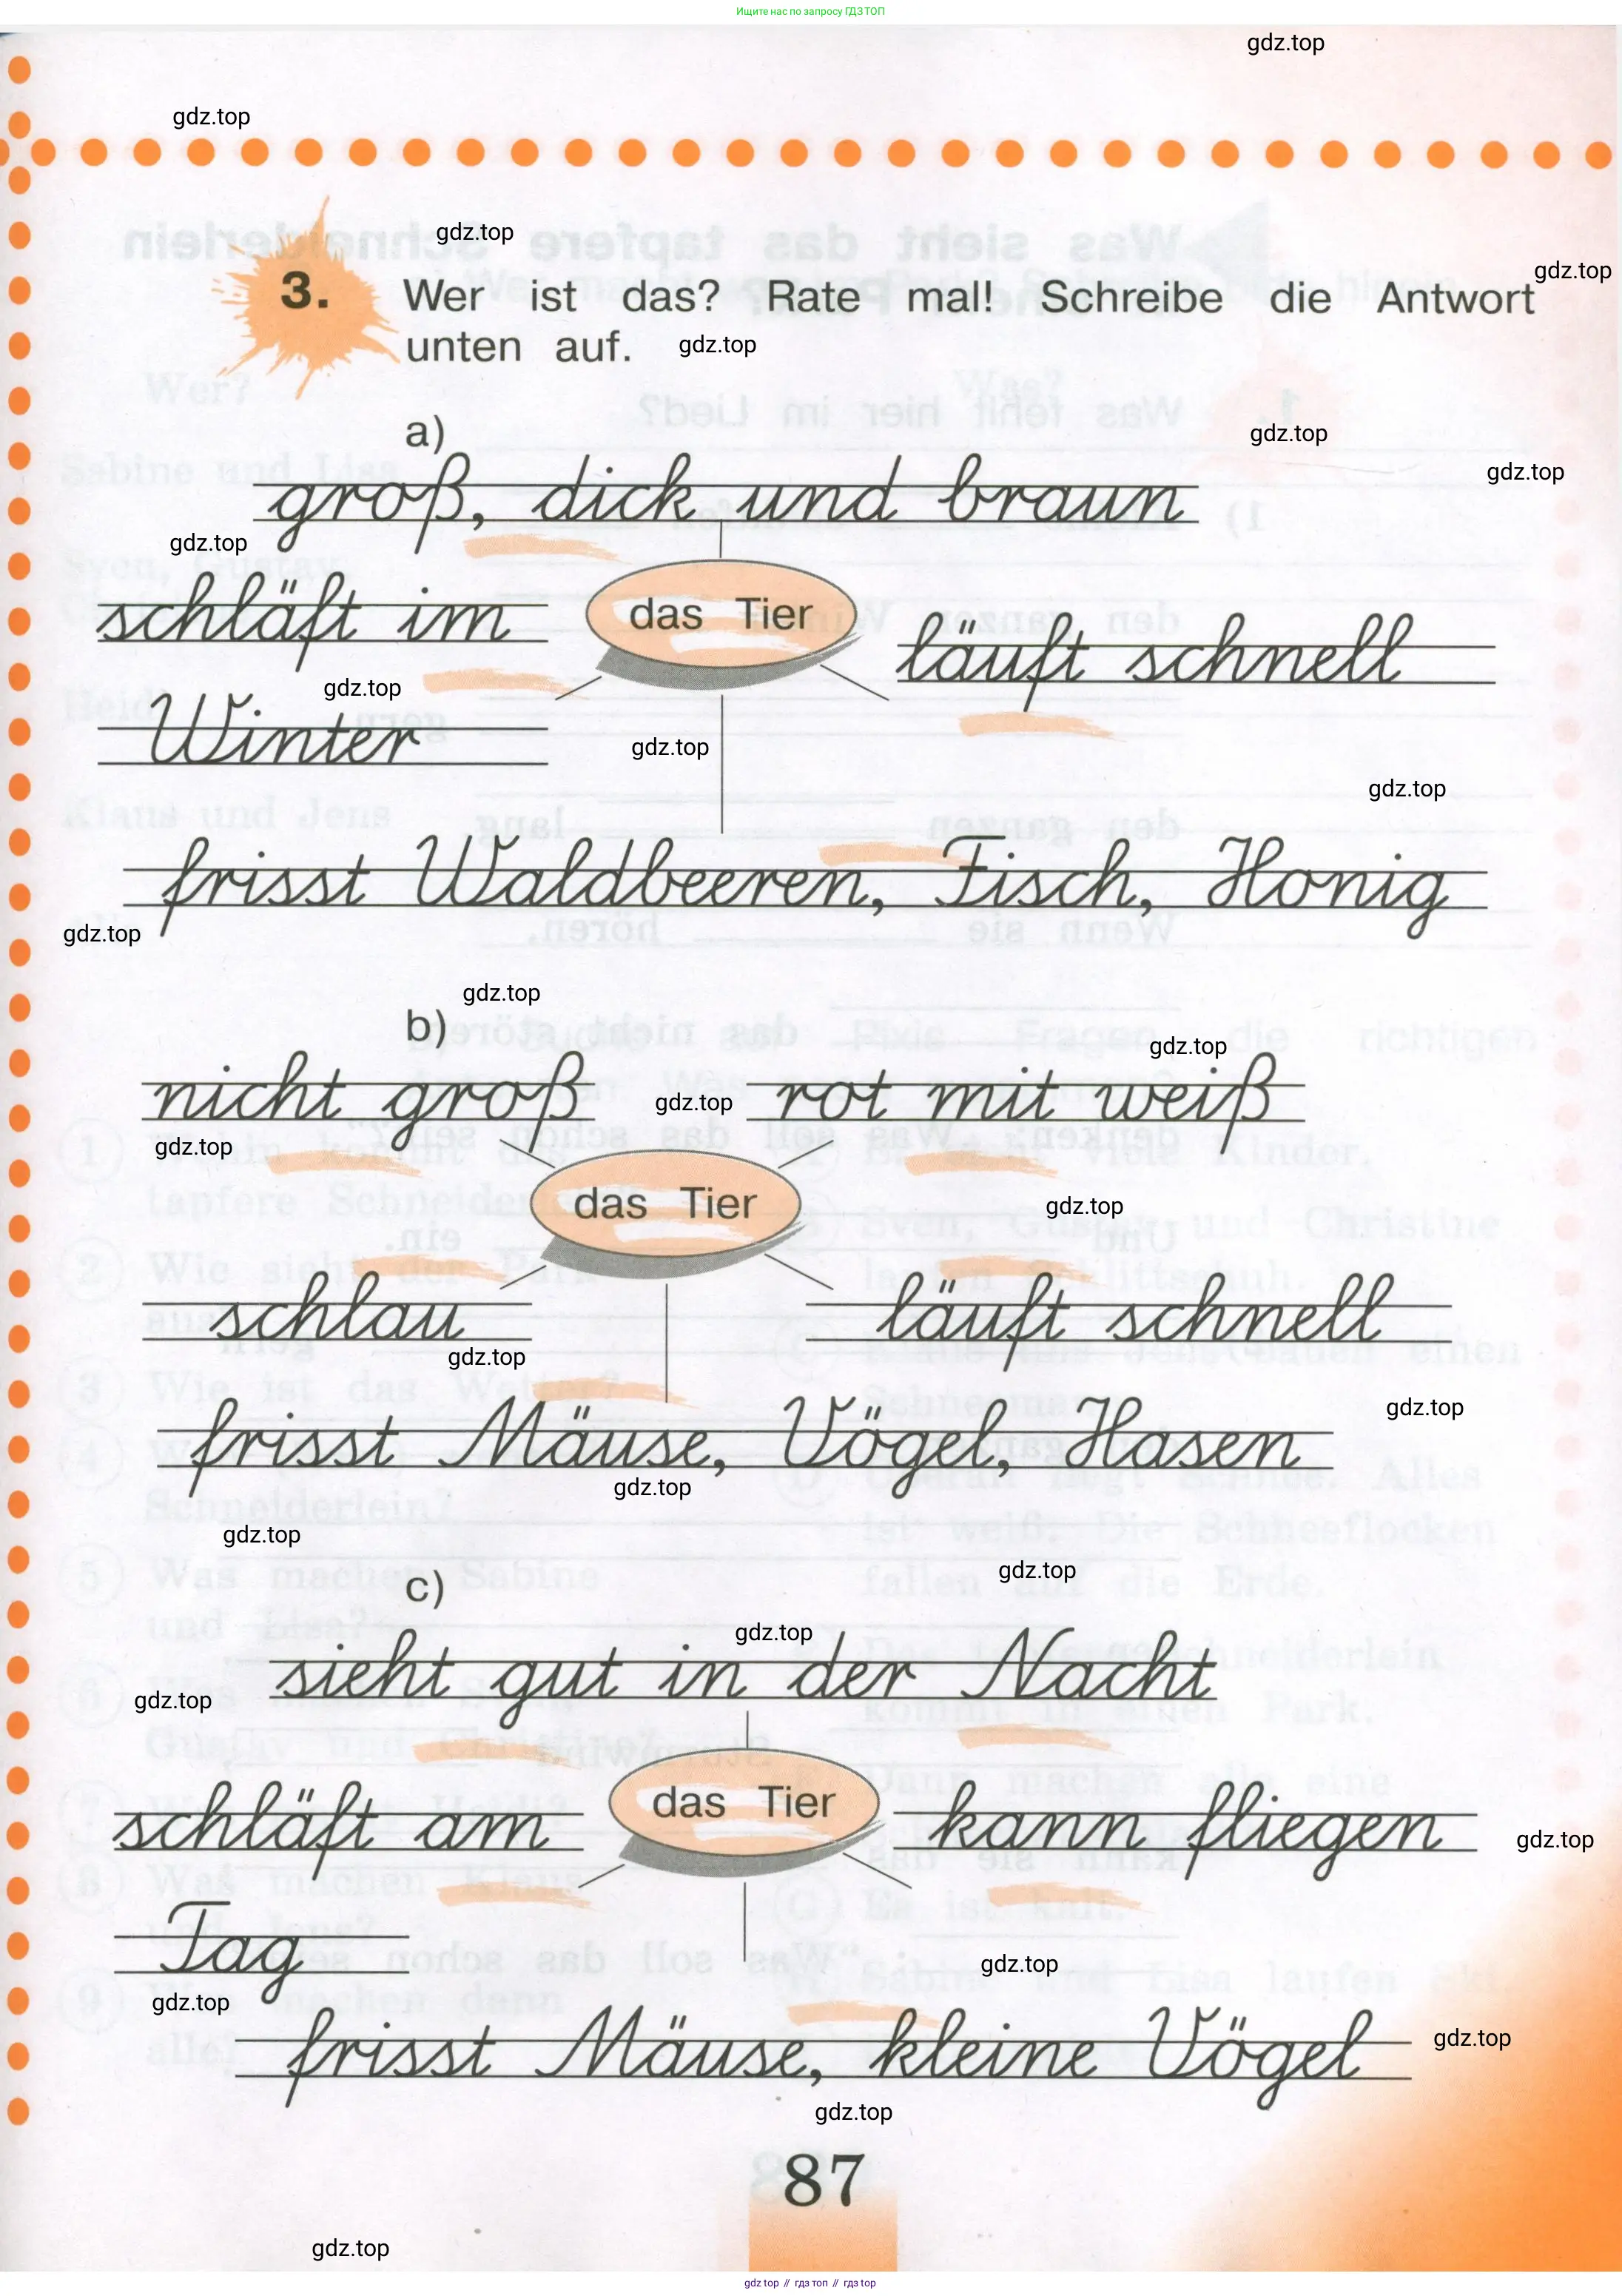 Ищите нас по запросу ГДЗ ТОП
gdz.top
gdz.top
gdz.top
gdz.top
3. Wer ist das? Rate mal! Schreibe die Antwort
unten auf. gdz.top
a)
gdz.top
gdz.top
groß, dick und braun
gdz.top
schläft im
das Tier
läuft schnell
gdz.top
Winter
gdz.top
gdz.top
frisst Waldbeeren, Fisch, Honig
gdz.top
gdz.top
b)
gdz.top
nicht groß
gdz.top
rot mit weiß
gdz.top
das Tier
gdz.top
schlau
läuft schnell
gdz.top
gdz.top
frisst Mäuse, Vögel, Hasen
gdz.top
gdz.top
gdz.top
c)
gdz.top
sieht gut in der Nacht
gdz.top
schläft am
das Tier
kann fliegen
gdz.top
Tag
gdz.top
gdz.top
frisst Mäuse, kleine Vögel
gdz.top
gdz.top
87
gdz.top
gdz top // гдз топ // gdz top